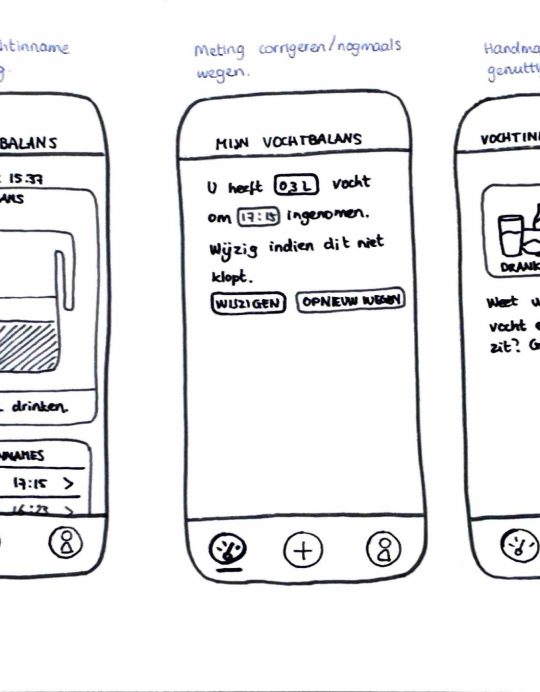 htinname
g.
BALANS
15:37
ANS
drinken.
NNAMES
17:15 >
16:23 >
Meting corrigeren/nogmaals
wegen.
MIJN VOCHTBALANS
U heeft 0,3 L vocht
om 17:15 ingenomen.
Wijzig indien dit niet
klopt.
WIJZIGEN OPNIEUW WEGEN
Handma
genutti
VOCHTIN
DRANK
Weet u
vocht e
zit? G